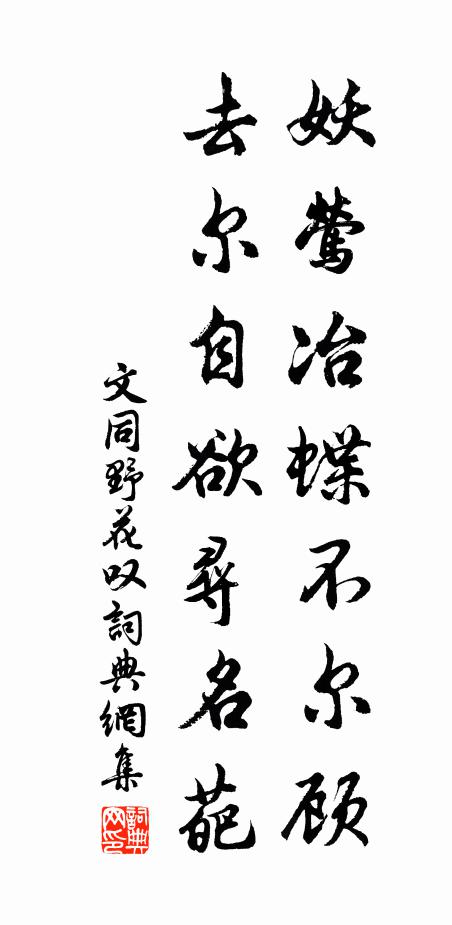 妖莺冶蝶不尔顾
去尔自欲尋名葩
文同野花叹詞典網集
詞典网印